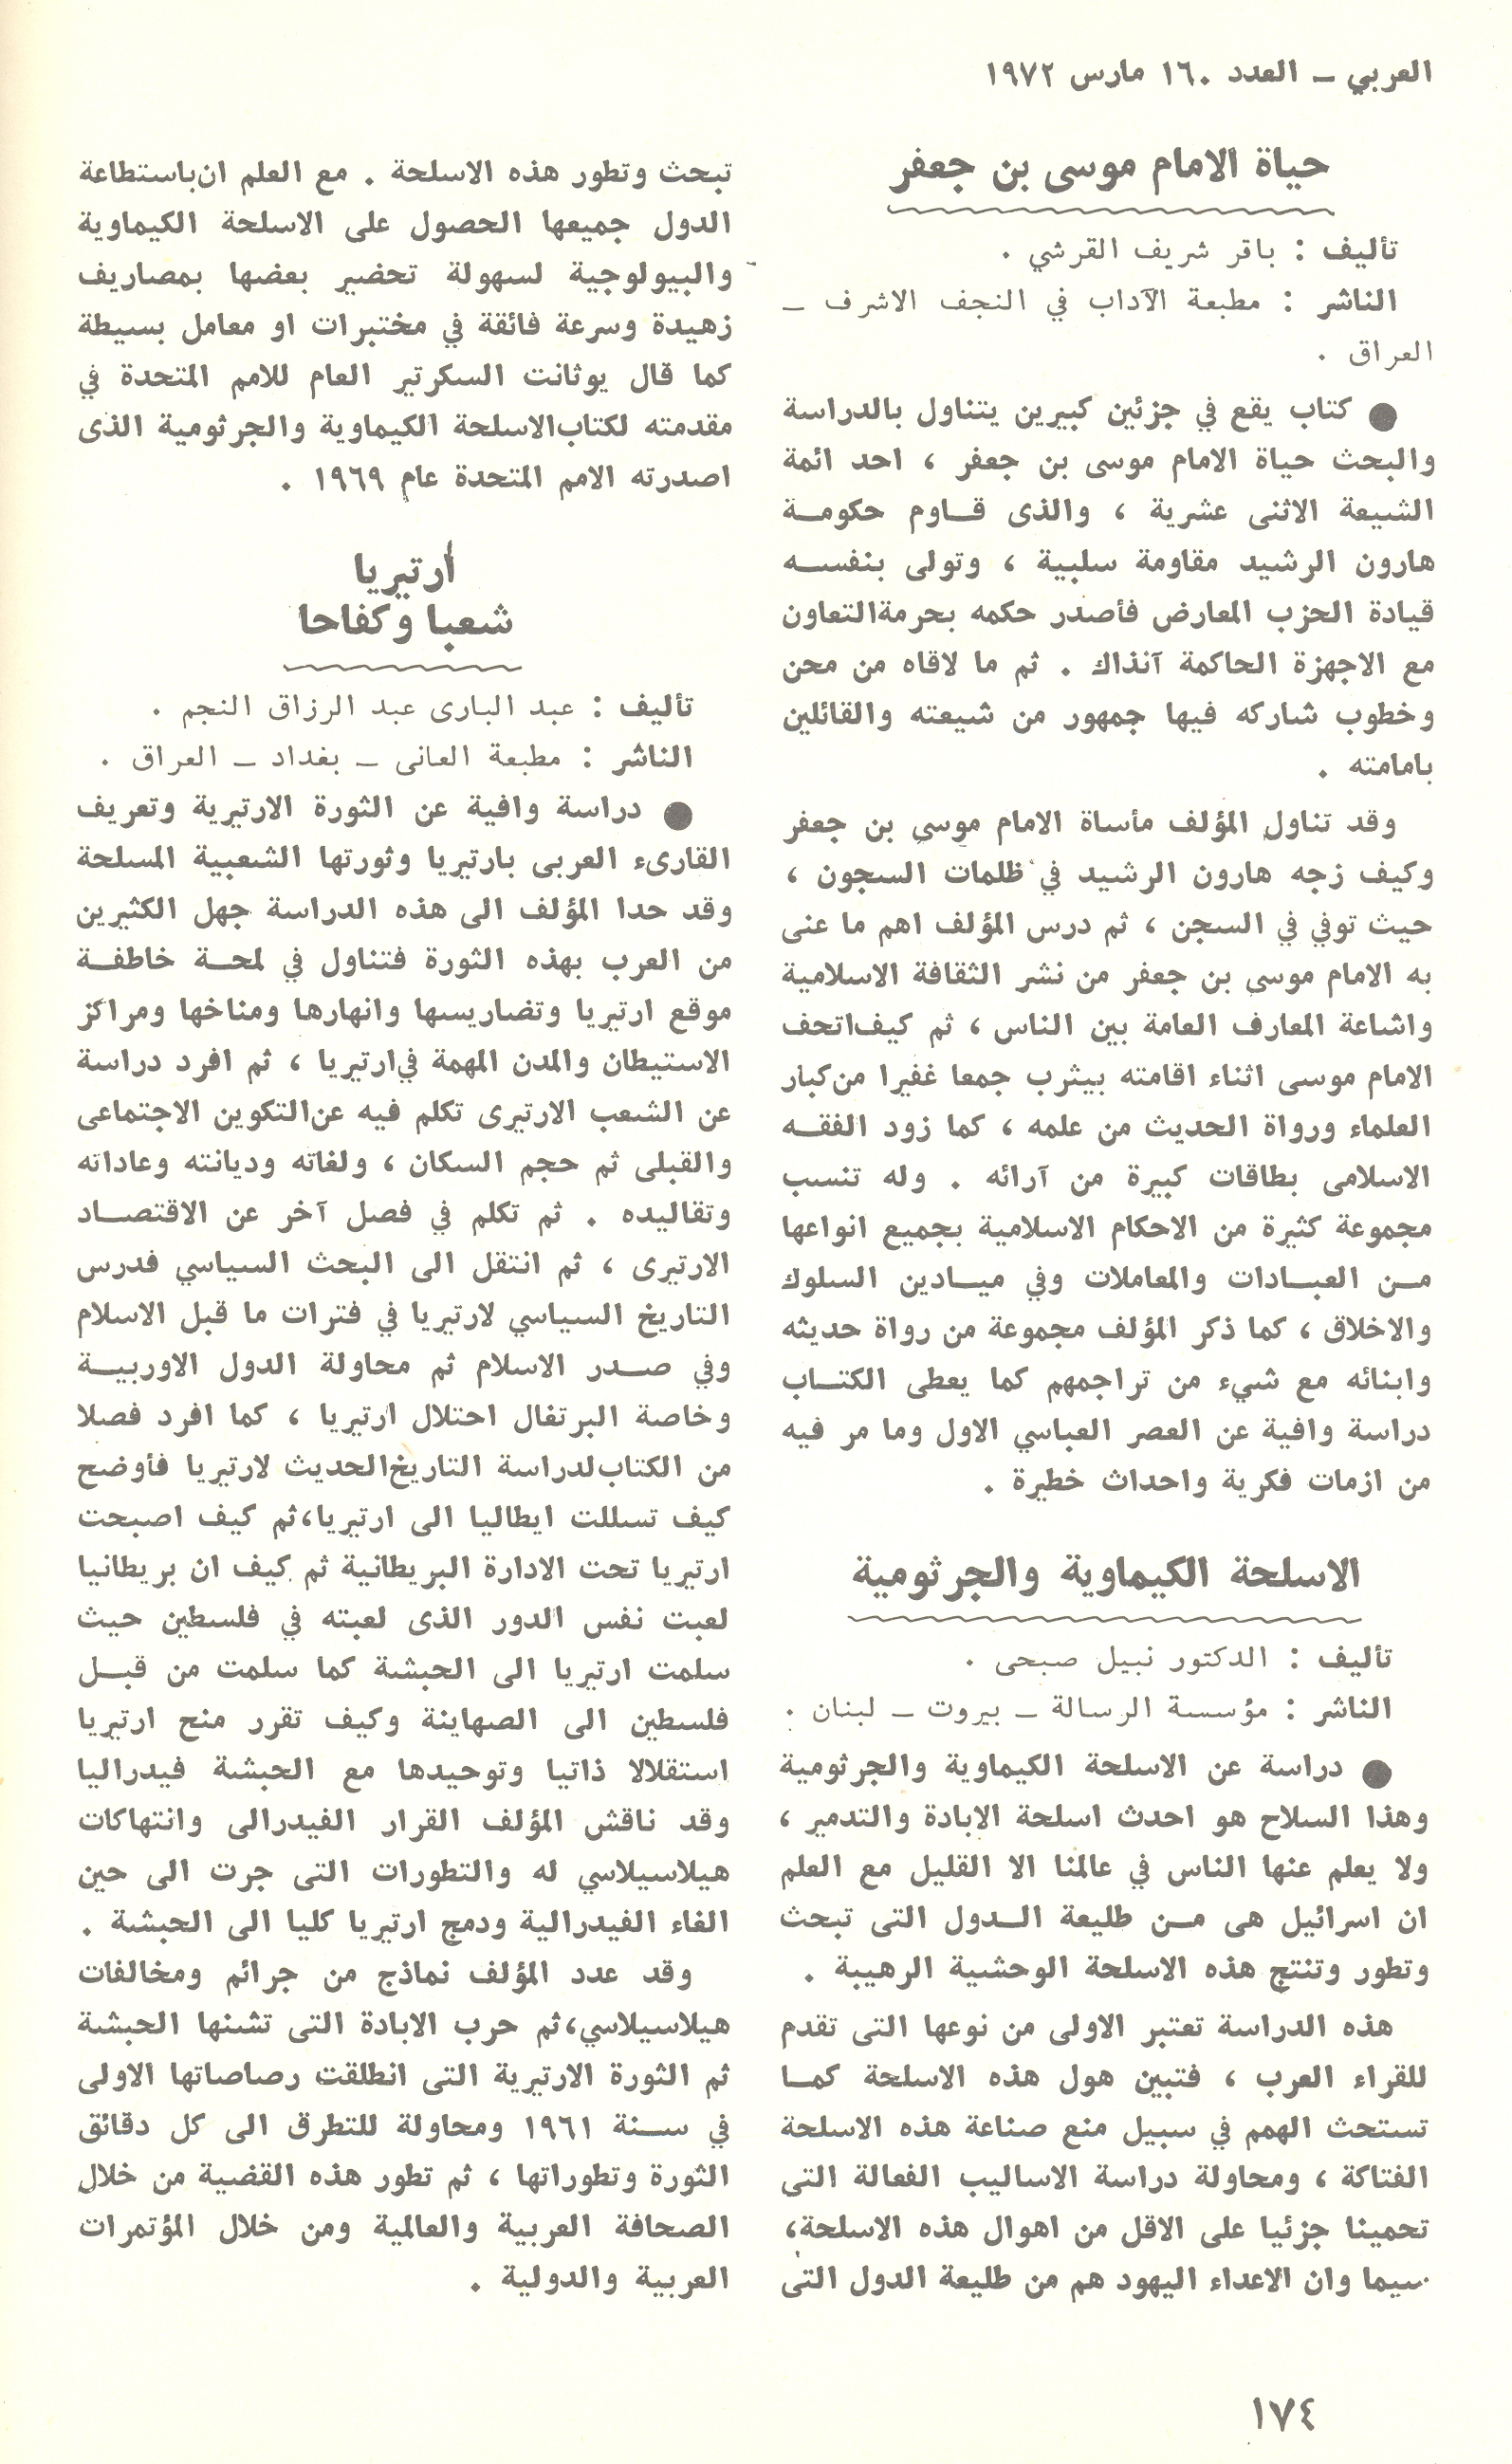 العربي ـ العدد ١٦٠ مارس ١٩٧٢
حياة الامام موسى بن جعفر
تأليف : باقر شريف القرشي .
الناشر : مطبعة الآداب في النجف الاشرف ـ
العراق .
● كتاب يقع في جزئين كبيرين يتناول بالدراسة
والبحث حياة الامام موسى بن جعفر ، احد ائمة
الشيعة الاثنى عشرية ، والذى قـاوم حكومـة
هارون الرشيد مقاومة سلبية ، وتولى بنفسـه
قيادة الحزب المعارض فأصدر حكمه بحرمة التعاون
مع الاجهزة الحاكمة آنذاك . ثم ما لاقاه من محن
وخطوب شاركه فيها جمهور من شيعته والقائلين
بامامته .
وقد تناول المؤلف مأساة الامام موسى بن جعفر
وكيف زجه هارون الرشيد في ظلمات السجون ،
حيث توفي في السجن ، ثم درس المؤلف اهم ما عنى
به الامام موسى بن جعفر من نشر الثقافة الاسلامية
واشاعة المعارف العامة بين الناس ، ثم كيف اتحف
الامام موسى اثناء اقامته بيثرب جمعا غفيرا من كبار
العلماء ورواة الحديث من علمه ، كما زود الفقـه
الاسلامى بطاقات كبيرة من آرائه . وله تنسب
مجموعة كثيرة من الاحكام الاسلامية بجميع انواعها
مـن العبـادات والمعاملات وفي ميـادين السلوك
والاخلاق ، كما ذكر المؤلف مجموعة من رواة حديثه
وابنائه مع شيء من تراجمهم كما يعطى الكتـاب
دراسة وافية عن العصر العباسي الاول وما مر فيه
من ازمات فكرية واحداث خطيرة .
الاسلحة الكيماوية والجرثومية
تأليف : الدكتور نبيل صبحى .
الناشر : مؤسسة الرسالة ـ بيروت ـ لبنان .
● دراسة عن الاسلحة الكيماوية والجرثومية
وهذا السلاح هو احدث اسلحة الابادة والتدمير ،
ولا يعلم عنها الناس في عالمنا الا القليل مع العلم
ان اسرائيل هى مـن طليعة الـدول التى تبحث
وتطور وتنتج هذه الاسلحة الوحشية الرهيبة .
هذه الدراسة تعتبر الاولى من نوعها التى تقدم
للقراء العرب ، فتبين هول هذه الاسلحة كمـا
تستحث الهمم في سبيل منع صناعة هذه الاسلحة
الفتاكة ، ومحاولة دراسة الاساليب الفعالة التى
تحمينا جزئيا على الاقل من اهوال هذه الاسلحة،
سيما وان الاعداء اليهود هم من طليعة الدول التى
تبحث وتطور هذه الاسلحة . مع العلم ان باستطاعة
الدول جميعها الحصول على الاسلحة الكيماوية
والبيولوجية لسهولة تحضير بعضها بمصاريف
زهيدة وسرعة فائقة في مختبرات او معامل بسيطة
كما قال يوثانت السكرتير العام للامم المتحدة في
مقدمته لكتاب الاسلحة الكيماوية والجرثومية الذى
اصدرته الامم المتحدة عام ١٩٦٩ .
أرتيريا
شعبا وكفاحا
تأليف : عبد البارى عبد الرزاق النجم .
الناشر : مطبعة العانى ـ بغداد ـ العراق .
● دراسة وافية عن الثورة الارتيرية وتعريف
القارىء العربى بارتيريا وثورتها الشعبية المسلحة
وقد حدا المؤلف الى هذه الدراسة جهل الكثيرين
من العرب بهذه الثورة فتناول في لمحـة خاطفـة
موقع ارتيريا وتضاريسها وانهارها ومناخها ومراكز
الاستيطان والمدن المهمة في ارتيريا ، ثم افرد دراسة
عن الشعب الارتيرى تكلم فيه عن التكوين الاجتماعى
والقبلى ثم حجم السكان ، ولغاته وديانته وعاداته
وتقاليده . ثم تكلم في فصل آخر عن الاقتصـاد
الارتيرى ، ثم انتقل الى البحث السياسي فدرس
التاريخ السياسي لارتيريا في فترات ما قبل الاسلام
وفي صـدر الاسلام ثم محاولة الدول الاوربيـة
وخاصة البرتغال احتلال ارتيريا ، كما افرد فصلا
من الكتاب لدراسة التاريخ الحديث لارتيريا فأوضح
كيف تسللت ايطاليا الى ارتيريا،ثم كيف اصبحت
ارتيريا تحت الادارة البريطانية ثم كيف ان بريطانيا
لعبت نفس الدور الذى لعبته في فلسطين حيث
سلمت ارتيريا الى الحبشة كما سلمت من قبـل
فلسطين الى الصهاينة وكيف تقرر منح ارتيريا
استقلالا ذاتيا وتوحيدها مع الحبشة فيدراليا
وقد ناقش المؤلف القرار الفيدرالى وانتهاكات
هيلاسيلاسي له والتطورات التى جرت الى حين
الغاء الفيدرالية ودمج ارتيريا كليا الى الحبشة .
وقد عدد المؤلف نماذج من جرائم ومخالفات
هيلاسيلاسي،ثم حرب الابادة التى تشنها الحبشة
ثم الثورة الارتيرية التى انطلقت رصاصاتها الاولى
في سـنة ١٩٦١ ومحاولة للتطرق الى كل دقائق
الثورة وتطوراتها ، ثم تطور هذه القضية من خلال
الصحافة العربية والعالمية ومن خلال المؤتمرات
العربية والدولية .
١٧٤